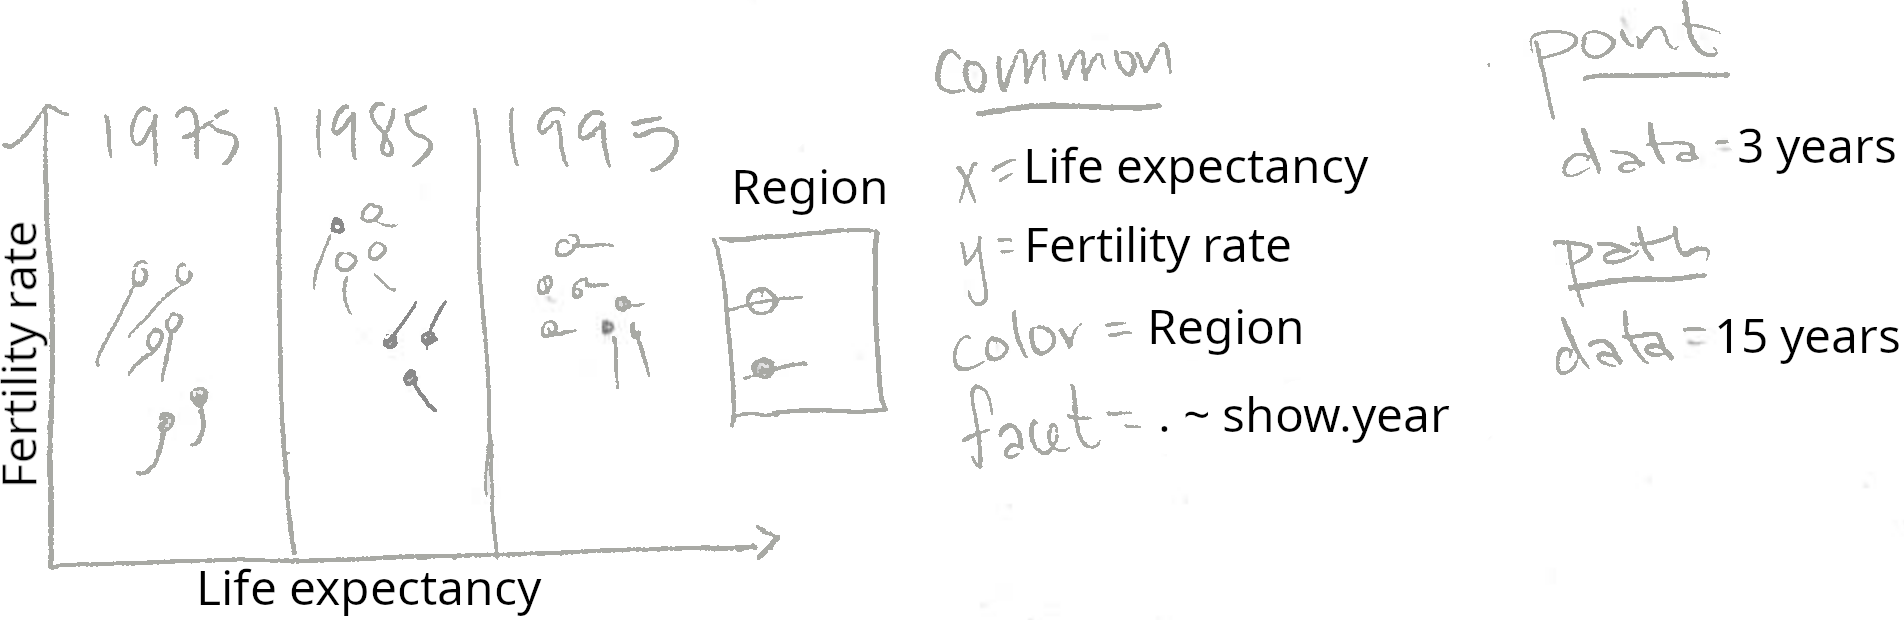 1975 1985 1995
Fertility rate
Life expectancy
Region
common
x = Life expectancy
y = Fertility rate
color = Region
facet = . ~ show.year
point
data = 3 years
path
data = 15 years